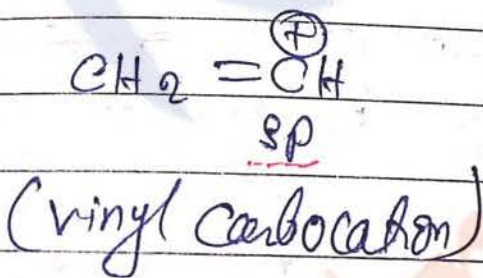 ⊕
CH₂ = CH
sp
(vinyl Carbocation)